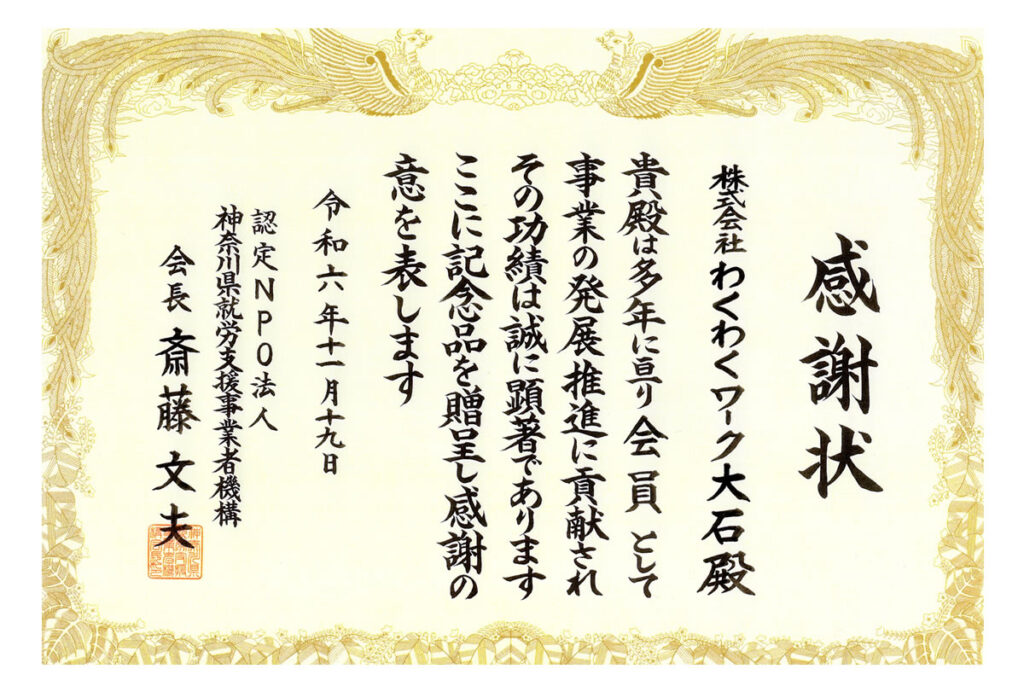 感謝状
株式会社わくわくワーク大石殿
貴殿は多年に亘り会員として
事業の発展推進に貢献され
その功績は誠に顕著であります
ここに記念品を贈呈し感謝の
意を表します
令和六年十一月十九日
認定NPO法人
神奈川県就労支援事業者機構
会長 斎藤文夫